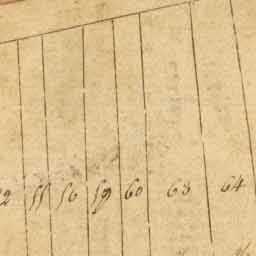 55 56 59 60 63 64